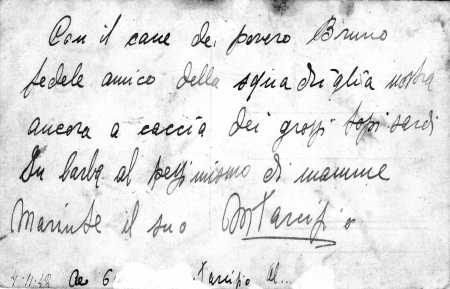 Con il cane del povero Bruno
fedele amico della squadriglia nostra
ancora a caccia dei grossi topi sardi
In barba al pessimismo di mamme
Marinte il suo Tarcisio
6
Tarcisio